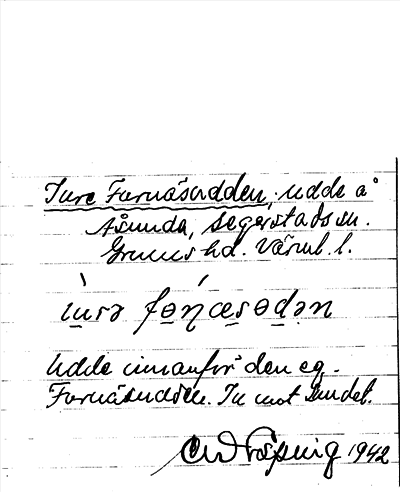 Inre Furnäsudden, udde å
Åsunda, Segerstads sn.
Grums hd. Värml. l.
ìnrə fø̣ńæsɵdən
Udde innanför den eg.
Furnäsudden. In mot Sundet.
1942